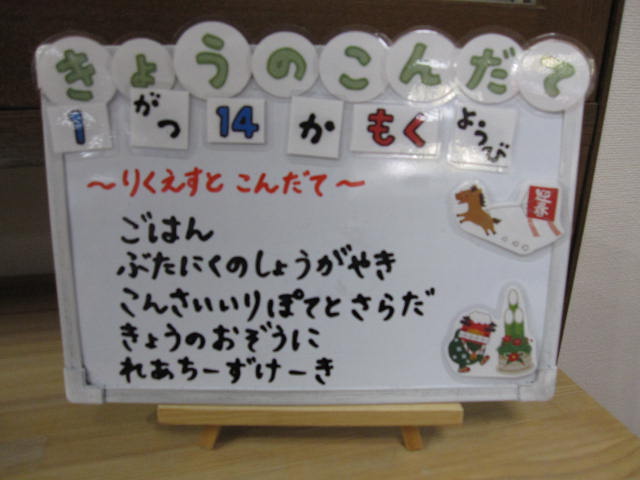 きょうのこんだて
1 がつ 14 か もく ようび
～りくえすと こんだて～
迎春
ごはん
ぶたにくのしょうがやき
こんさいいりぽてとさらだ
きょうのおぞうに
れあちーずけーき